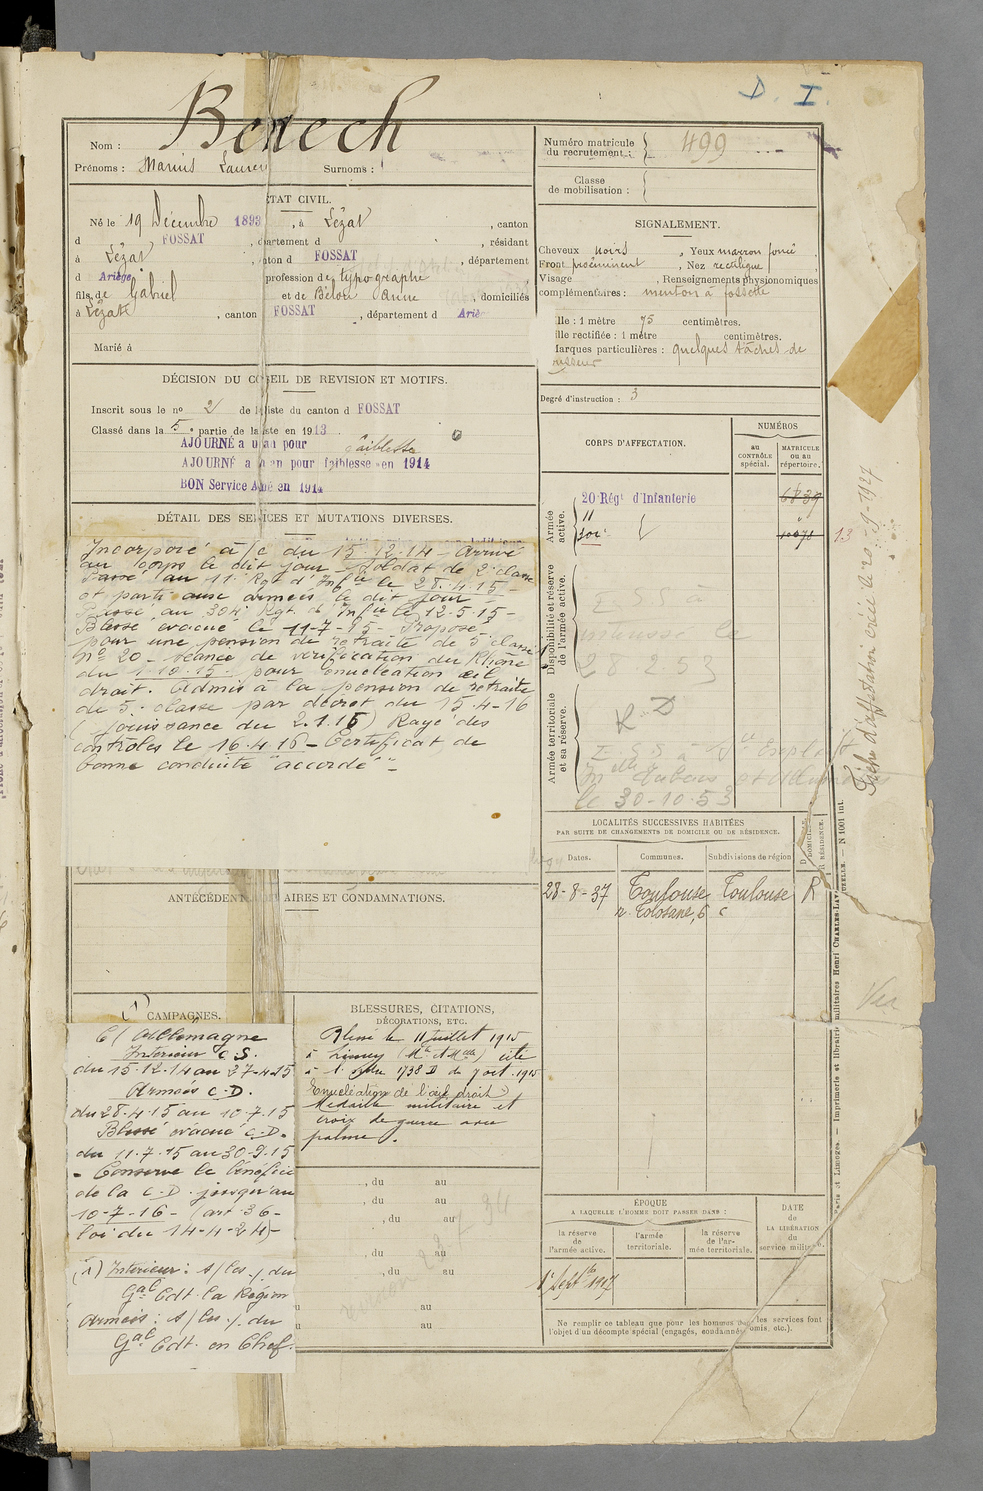 D. I.
Nom : Benech
Prénoms : Marius Lauren Surnoms :
ÉTAT CIVIL.
Né le 19 Décembre 1893, à Lézat, canton
d FOSSAT, département d , résidant
à Lézat, canton d FOSSAT, département
d Ariège profession de typographe
fils de Gabriel et de Anne, domiciliés
à Lézat, canton FOSSAT, département d Ariè
Marié à
DÉCISION DU CONSEIL DE REVISION ET MOTIFS.
Inscrit sous le n° 2 de la liste du canton d FOSSAT
Classé dans la 5e partie de la liste en 1913
AJOURNÉ a un an pour faiblesse
AJOURNÉ a un an pour faiblesse en 1914
BON Service Armé en 1914
DÉTAIL DES SERVICES ET MUTATIONS DIVERSES.
Incorporé à/c du 15.12.14 - Arrivé
au corps le dit jour - Soldat de 2e classe
Passé au 11e Rgt d'Infie le 28.4.15 -
et parti aux armées le dit jour -
Passé au 304e Rgt d'Infie le 12.5.15 -
Blessé évacué le 11-7-15 - Proposé
pour une pension de retraite de 5e classe
N° 20 - séance de vérification du Rhône
du 1.10.15 - pour énucléation œil
droit. Admis à la pension de retraite
de 5e classe par décret du 15.4-16
(jouissance du 2.1.16) Rayé des
contrôles le 16.4.16 - Certificat de
bonne conduite "accordé" -
ANTÉCÉDENT AIRES ET CONDAMNATIONS.
CAMPAGNES.
C/ Allemagne
Intérieur C.S.
du 15.12.14 au 27-4-15
Armées C.D.
du 28.4.15 au 10.7.15
Blessé évacué C.D.
du 11.7.15 au 30-9.15
- Conserve le bénéfice
de la C.D. jusqu'au
10-7-16 - (art 36-
loi du 14-4-24) -
(1) Intérieur : s/les ./. du
Gal Cdt la Région
Armées : s/les ./. du
Gal Cdt en Chef.
BLESSURES, CITATIONS,
DÉCORATIONS, ETC.
Blessé le 11 juillet 1915
à Limey (Mthe et Mlle) cité
à l'ordre 1738 D du 7 oct. 1915
Enucléation de l'œil droit
Médaille militaire et
croix de guerre avec
palme.
, du au
, du au
, du au
, du au
, du au
au
au
Numéro matricule
du recrutement : 499
Classe
de mobilisation :
SIGNALEMENT.
Cheveux noirs, Yeux marron foncé
Front proéminent, Nez rectiligne
Visage , Renseignements physionomiques
complémentaires : menton à fossette
lle : 1 mètre 75 centimètres.
lle rectifiée : 1 mètre centimètres.
arques particulières : quelques tâches de
rousseur
Degré d'instruction : 3
CORPS D'AFFECTATION.
NUMÉROS
au
CONTRÔLE
spécial.
MATRICULE
ou au
répertoire.
Armée
active.
20e Régt d'Infanterie 6839
11 "
304e 10078 13
Disponibilité et réserve
de l'armée active.
28253
Armée territoriale
et sa réserve.
R.D
le 30-10-53
Fiche d'affectation créée le 20-9-1927
LOCALITÉS SUCCESSIVES HABITÉES
PAR SUITE DE CHANGEMENTS DE DOMICILE OU DE RÉSIDENCE.
Dates. Communes. Subdivisions de région
R RÉSIDENCE.
28-8-37 Toulouse Toulouse R
r. Tolosane, 6 c
ÉPOQUE
A LAQUELLE L'HOMME DOIT PASSER DANS :
DATE
de
LA LIBÉRATION
du
service militaire.
la réserve
de
l'armée active.
l'armée
territoriale.
la réserve
de l'ar-
mée territoriale.
1er Septbre 1917
Ne remplir ce tableau que pour les hommes les services font
l'objet d'un décompte spécial (engagés, condamnés omis. etc.).
Paris et Limoges. — Imprimerie et librairie militaires Henri CHARLES-LAVAUZELLE. — N 1001 int.